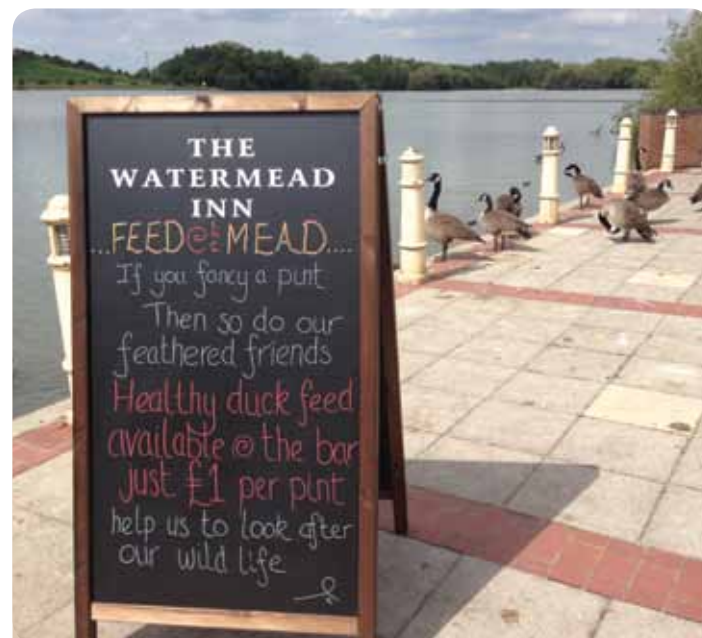 THE
WATERMEAD
INN
...FEED@ MEAD....
If you fancy a pint
Then so do our
feathered friends
Healthy duck feed
available @ the bar
just £1 per pint
help us to look after
our wild life